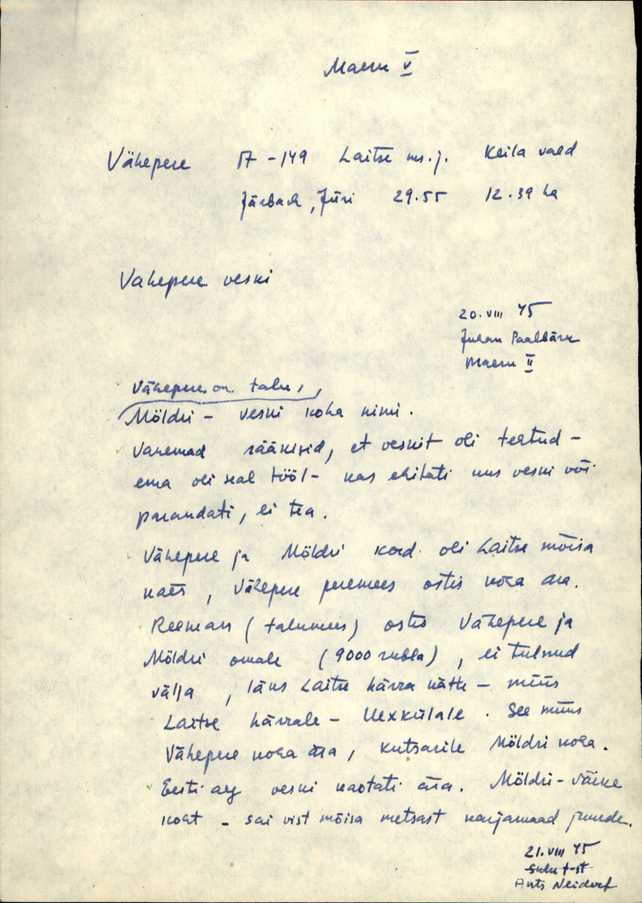 Maeru V
Vähepere 17-149 Laitse ms.j. Keila vald
Järbach, Jüri 29.55 12.39 ha
Vahepere veski
20.VIII 75
Juhan Paalbärk
Maeru II
Vähepere on talu,
Möldri - veski koha nimi.
Vanemad rääkisid, et veskit oli tehtud -
ema oli seal tööl - kas ehitati uus veski või
parandati, ei tea.
Vähepere ja Möldri koad oli Laitse mõisa
käes, Vähepere peremees ostis koha ära.
Reeman (talumees) ostis Vähepere ja
Möldri omale (9000 rubla), ei tulnud
välja, läks Laitse härra kätte - müüs
Laitse härrale - Uexkülale. See müüs
Vähepere koha ära, kutsarile Möldri koha.
Eesti aeg veski kaotati ära. Möldri - väike
koht - sai vist mõisa metsast karjamaad juurde.
21.VIII 75
Ants Neidorf